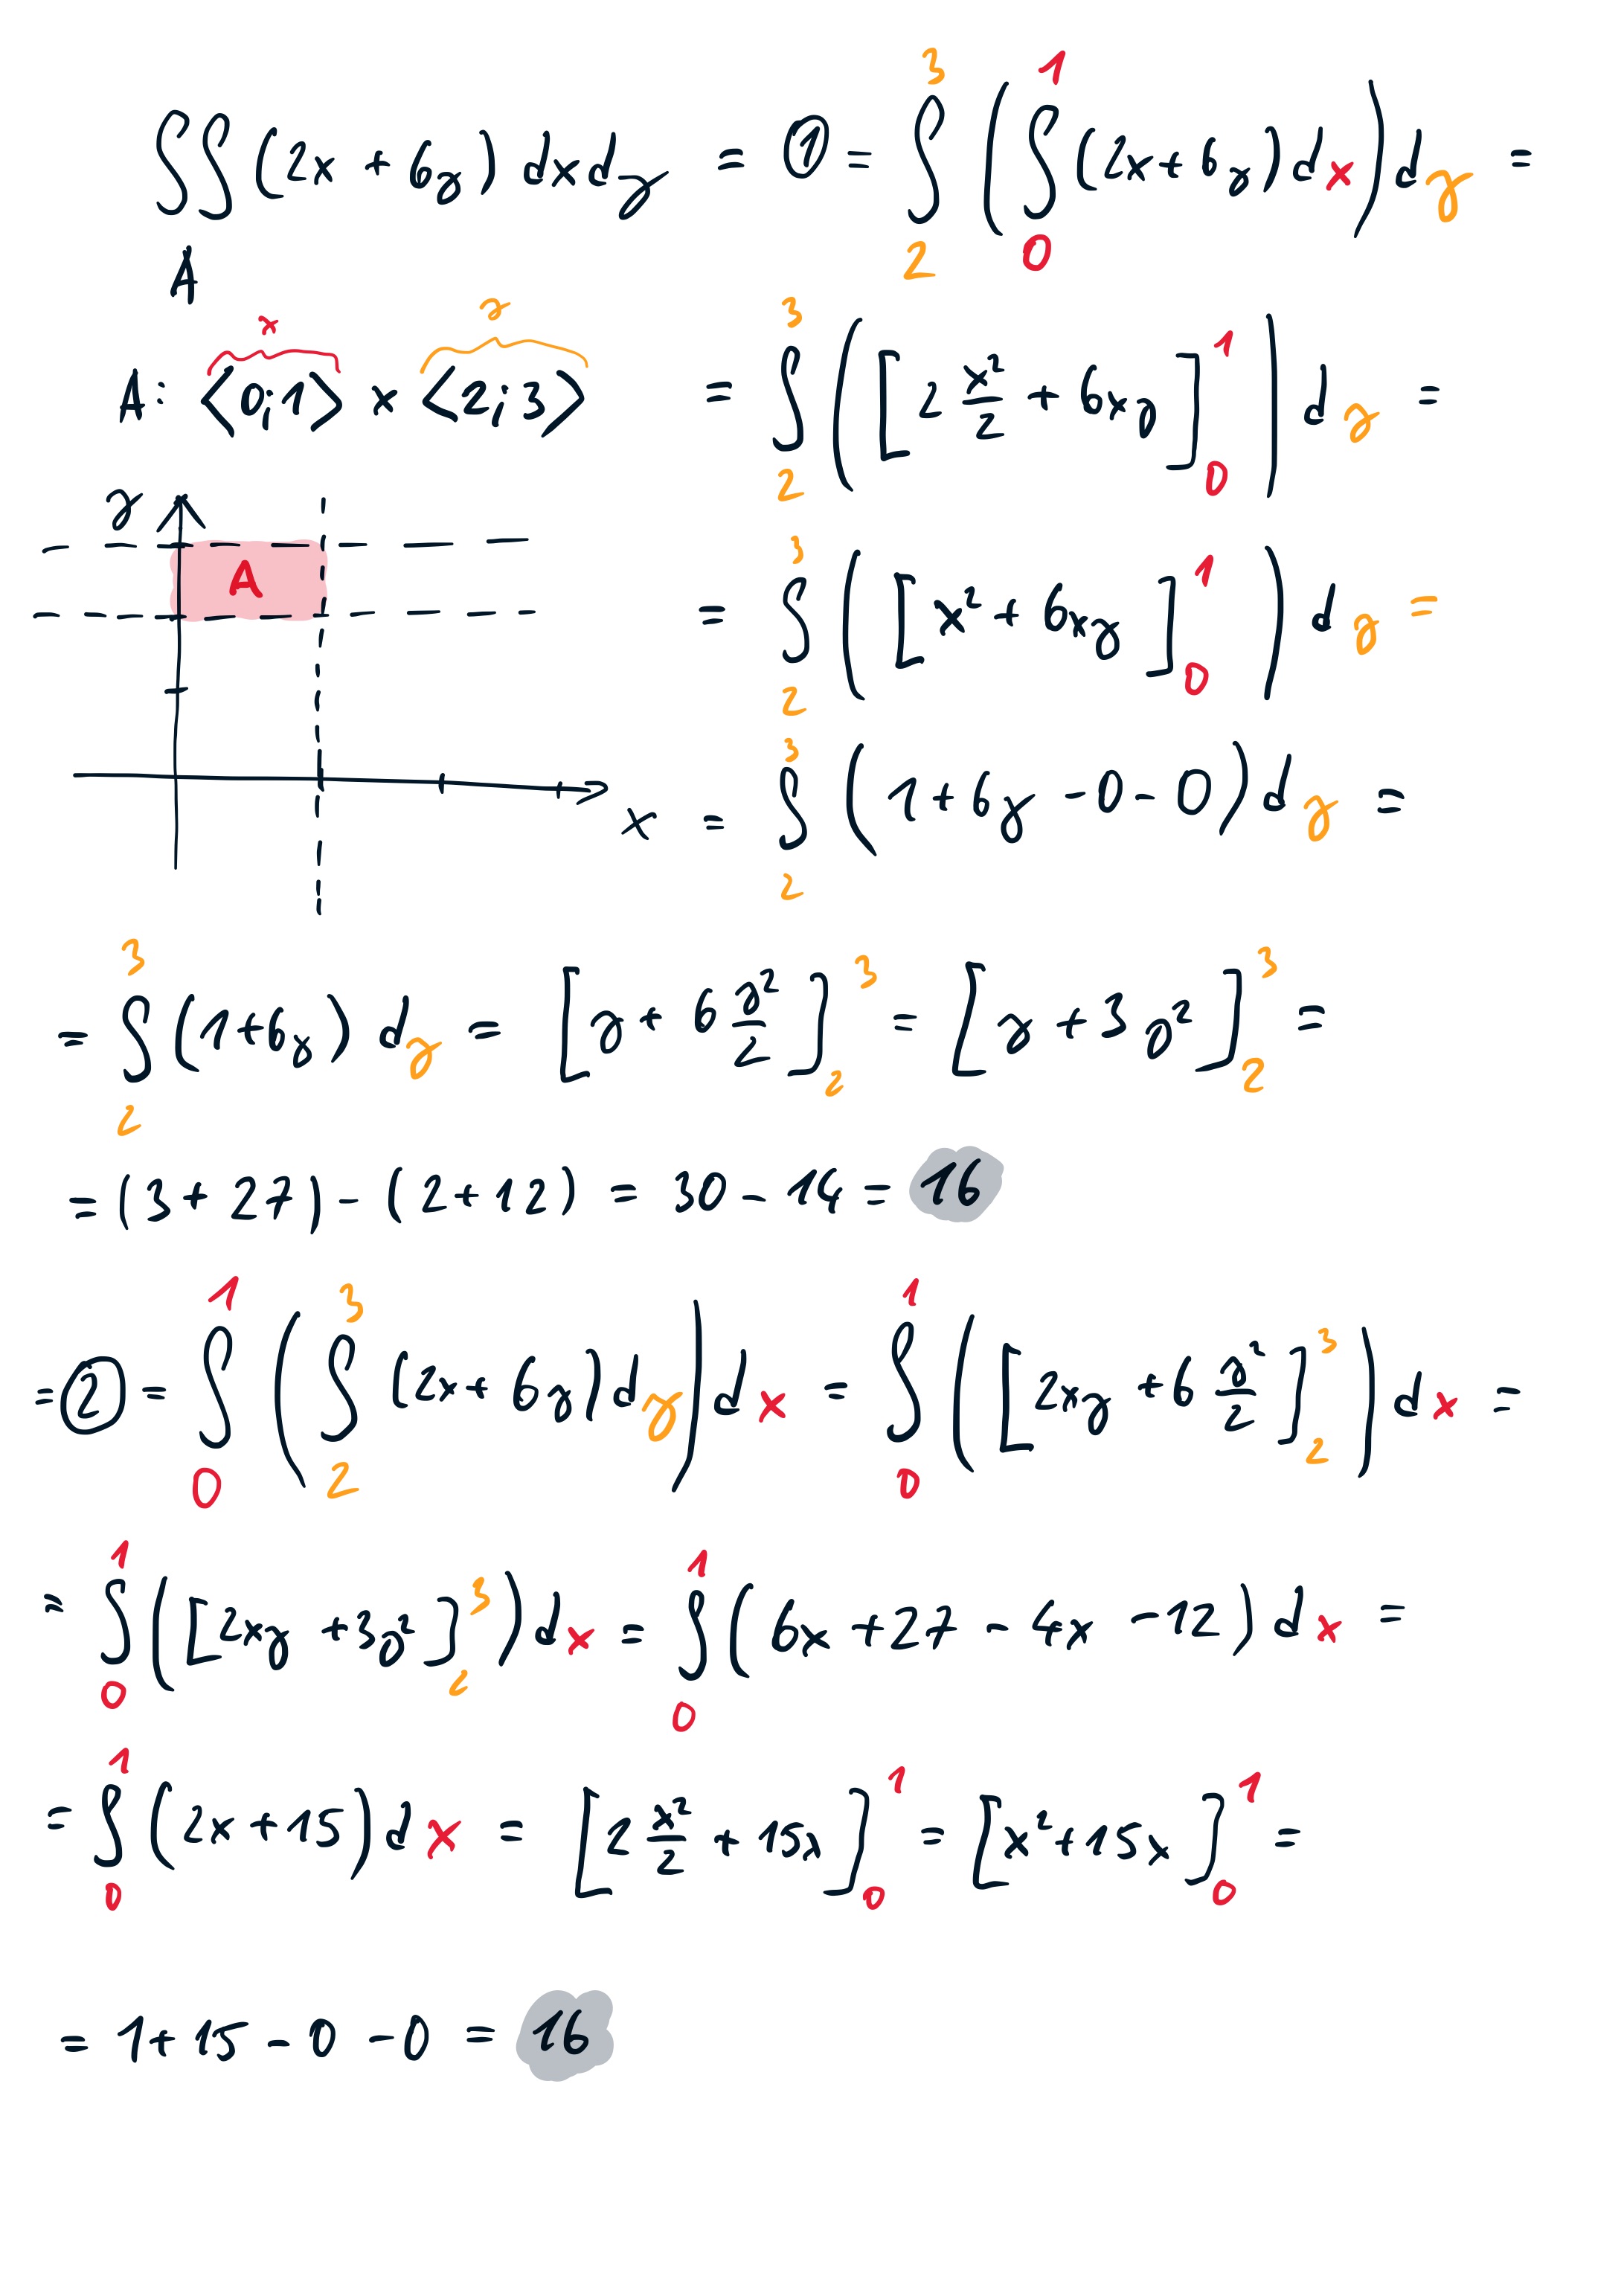 ∬_A (2x + 6y) dxdy = ① = ∫_2^3 (∫_0^1 (2x+6y) dx) dy =
A: ⟨0;1⟩ × ⟨2;3⟩
x
y
= ∫_2^3 ([2 x²/2 + 6xy]_0^1) dy =
y
A
x
= ∫_2^3 ([x² + 6xy]_0^1) dy =
= ∫_2^3 (1 + 6y - 0 - 0) dy =
= ∫_2^3 (1+6y) dy = [y + 6 y²/2]_2^3 = [y + 3y²]_2^3 =
= (3 + 27) - (2 + 12) = 30 - 14 = 16
= ② = ∫_0^1 (∫_2^3 (2x + 6y) dy) dx = ∫_0^1 ([2xy + 6 y²/2]_2^3) dx =
= ∫_0^1 ([2xy + 3y²]_2^3) dx = ∫_0^1 (6x + 27 - 4x - 12) dx =
= ∫_0^1 (2x + 15) dx = [2 x²/2 + 15x]_0^1 = [x² + 15x]_0^1 =
= 1 + 15 - 0 - 0 = 16